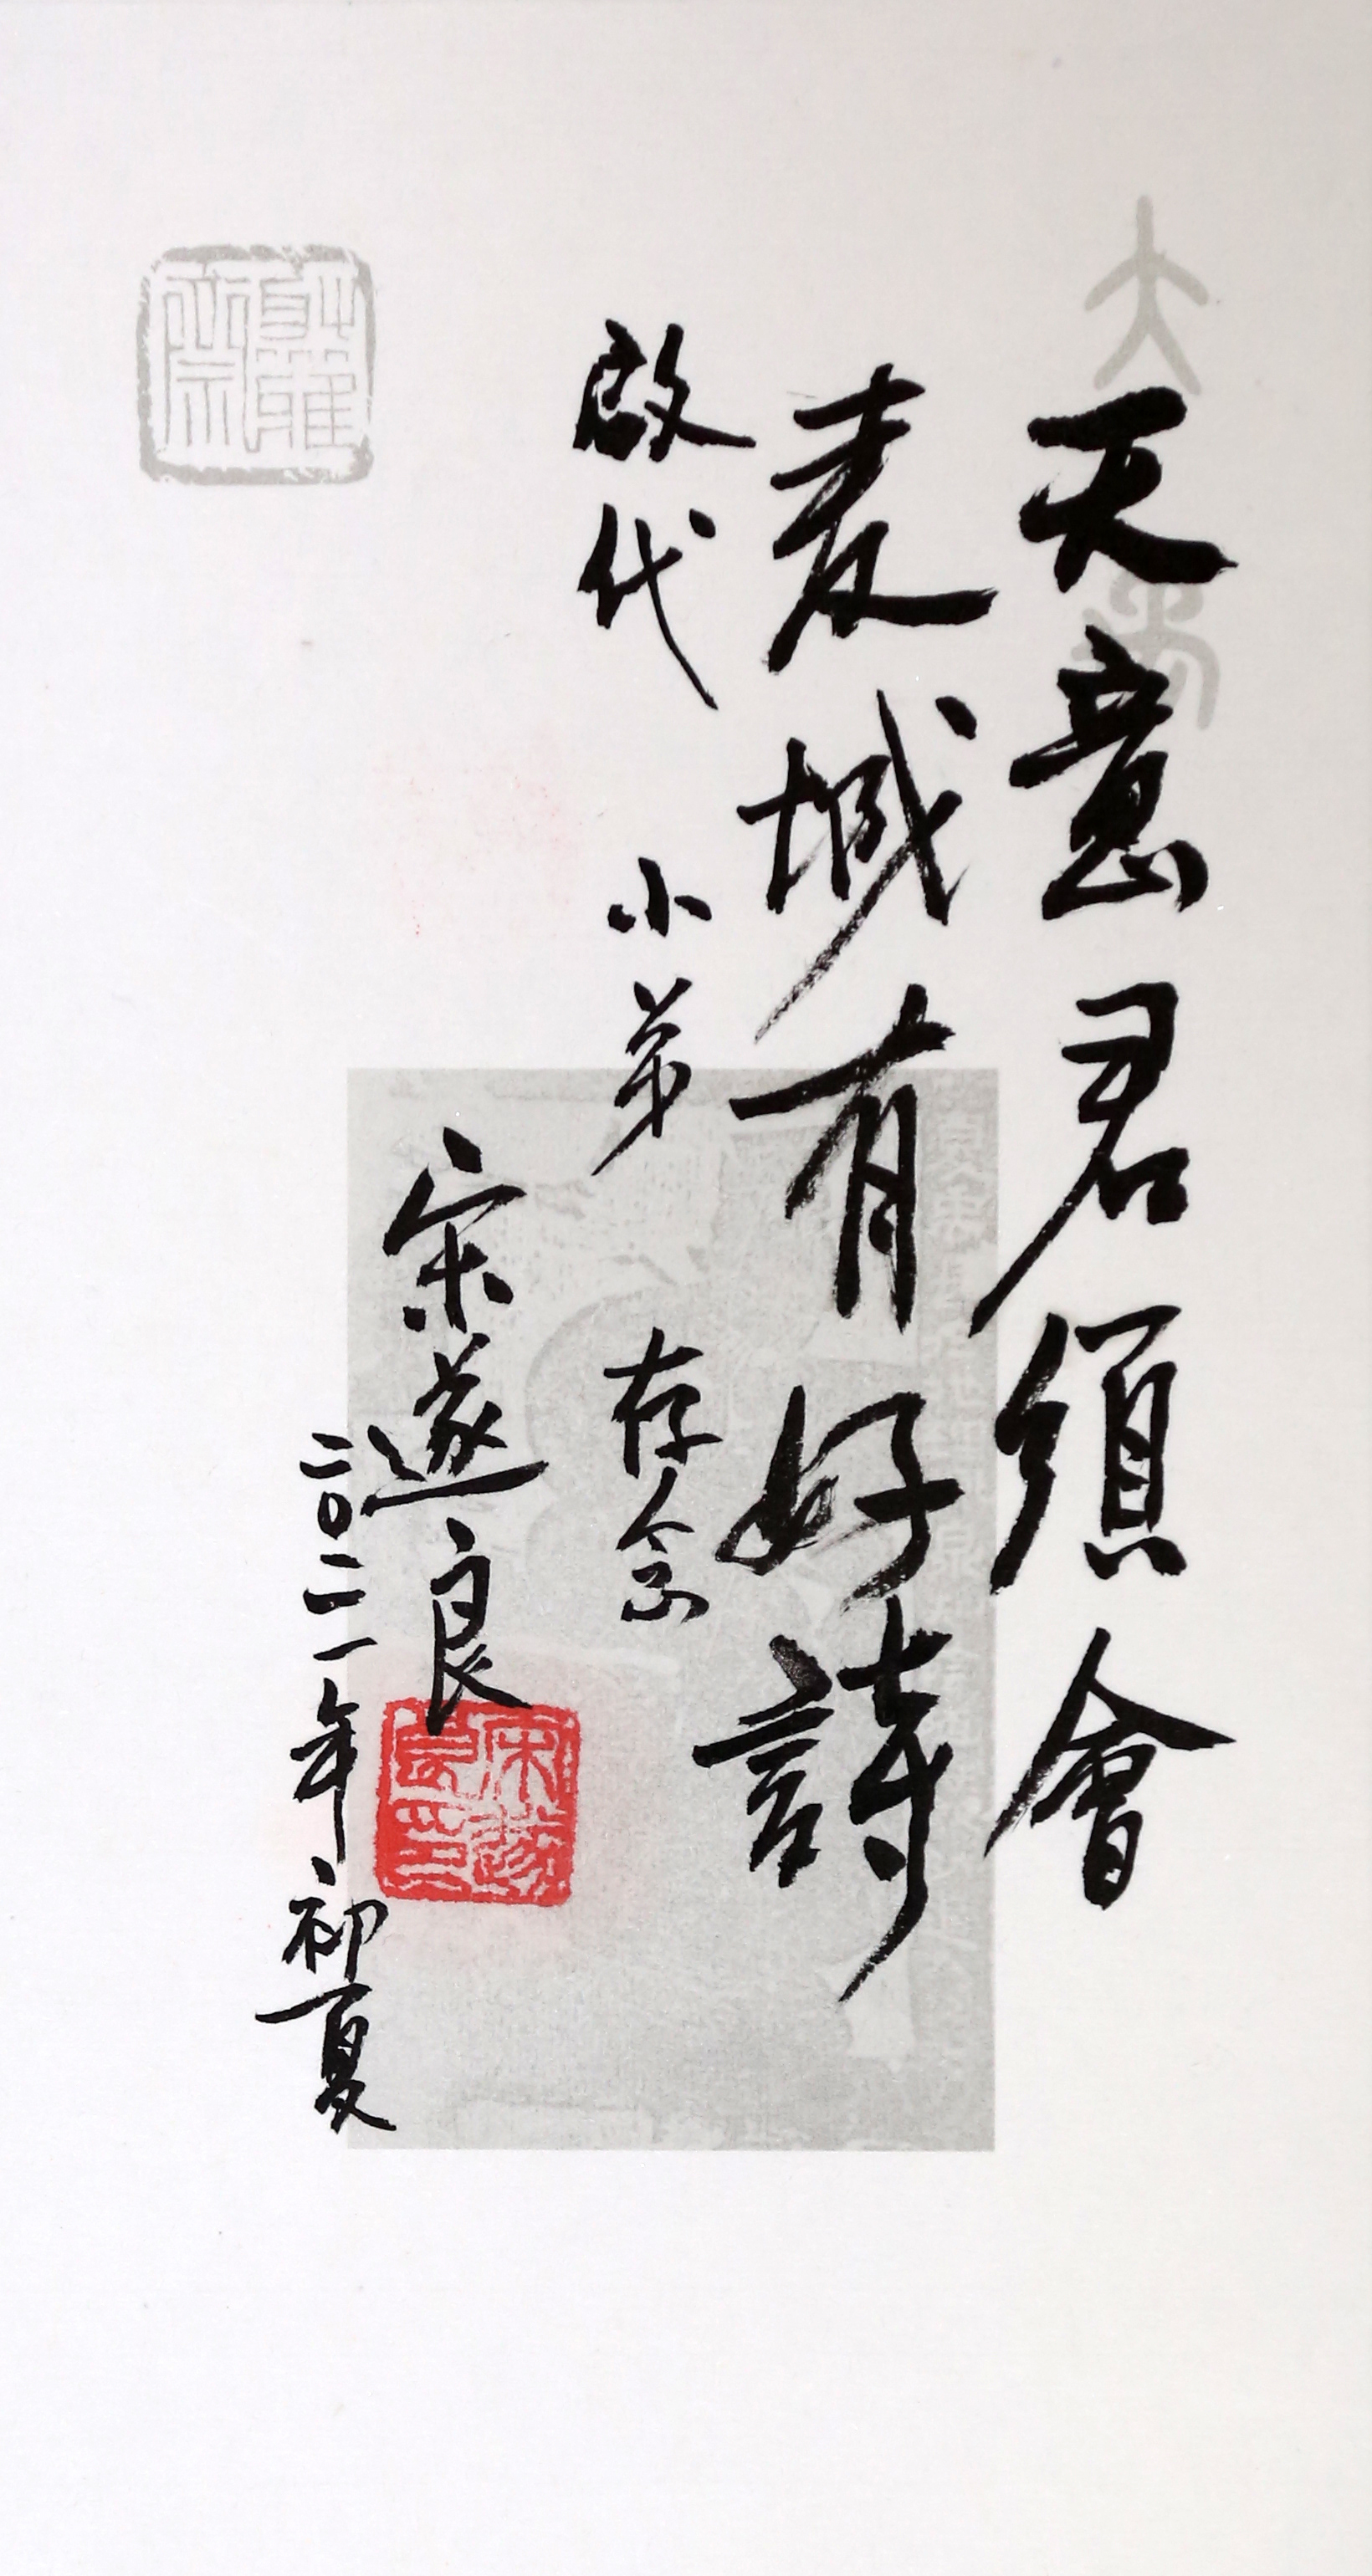 天意君須會
麦城有好詩
啟代 小弟 存念
宋遂良
二〇二一年初夏
宋遂良印